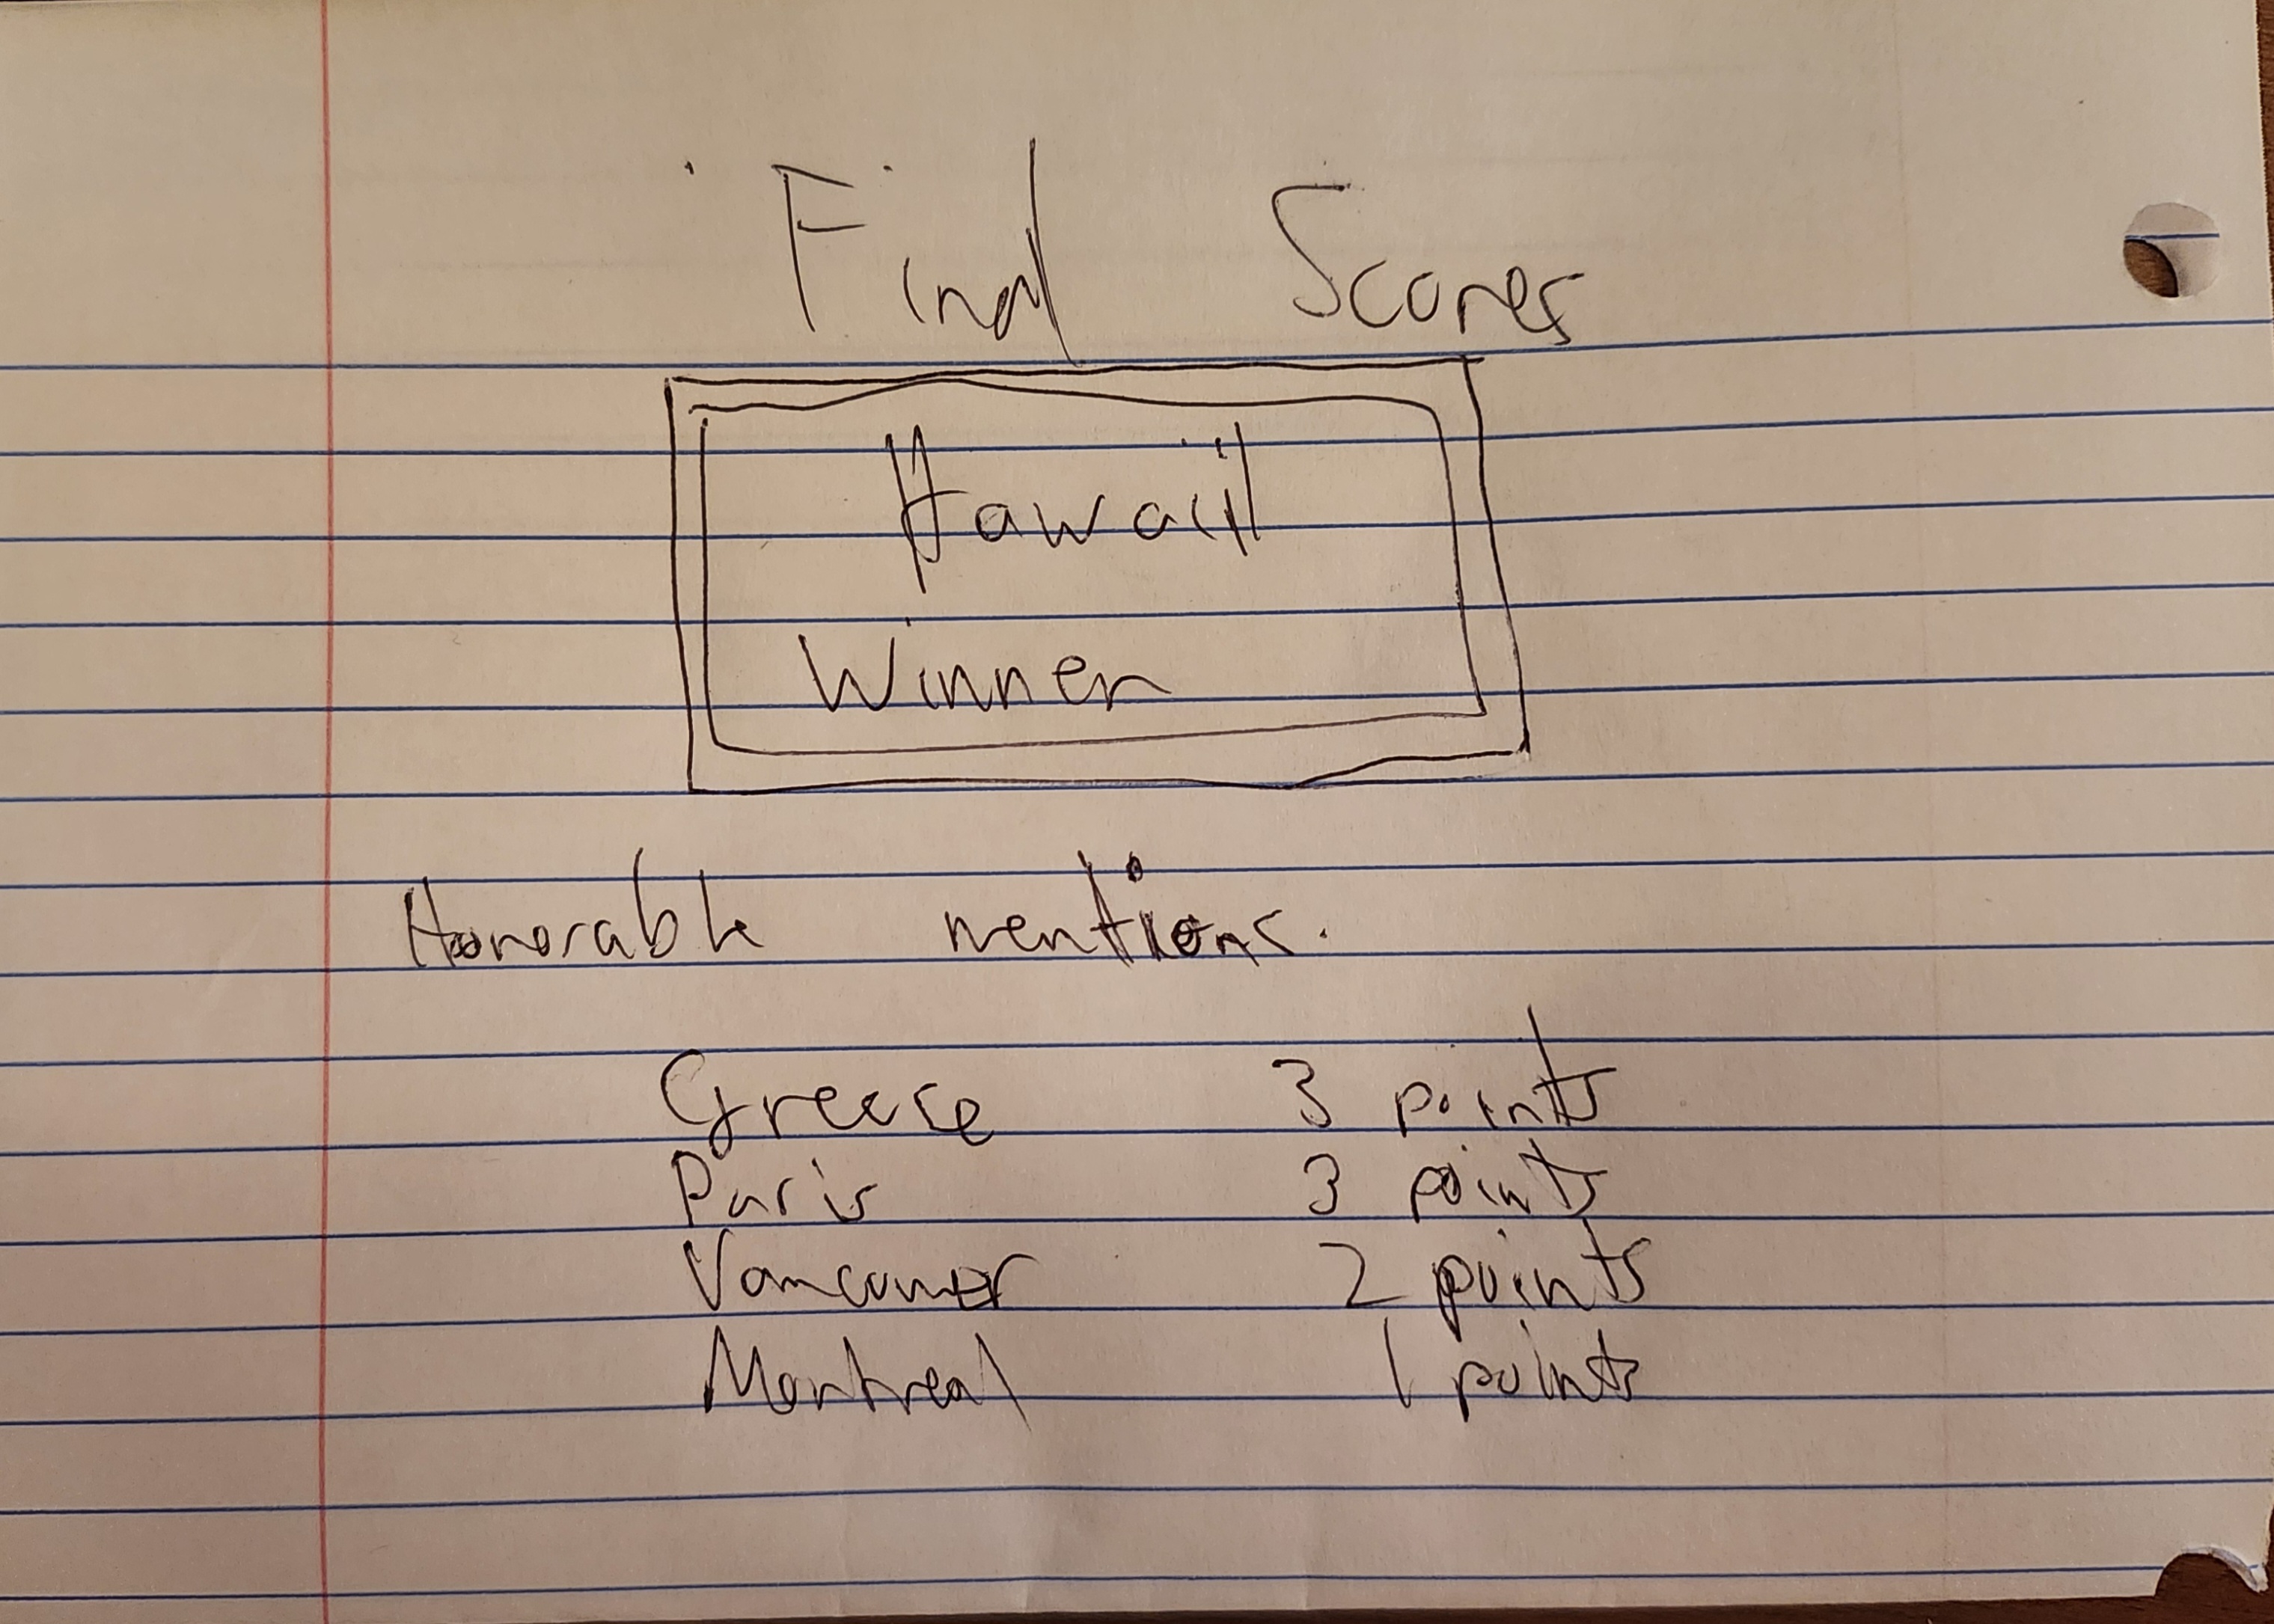 Final Scores
Hawaii
Winner
Honorable mentions.
Greece 3 points
Paris 3 points
Vancouver 2 points
Montreal 1 points